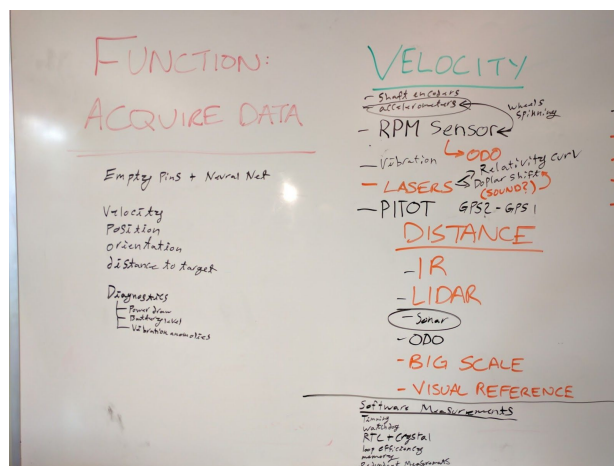 FUNCTION:
ACQUIRE DATA
Empty Pins + Neural Net
Velocity
Position
orientation
distance to target
Diagnostics
Power draw
Battery level
Vibration anomolies
VELOCITY
- Shaft encoders
- accelerometers
wheels
spinning
- RPM Sensor
ODO
- Vibration
Relativity curv
- LASERS
Doplar shift
(SOUND?)
- PITOT GPS2 - GPS1
DISTANCE
- IR
- LIDAR
- Sonar
- ODO
- BIG SCALE
- VISUAL REFERENCE
Software Measurements
Timing
RTC + Crystal
loop efficiency
memory